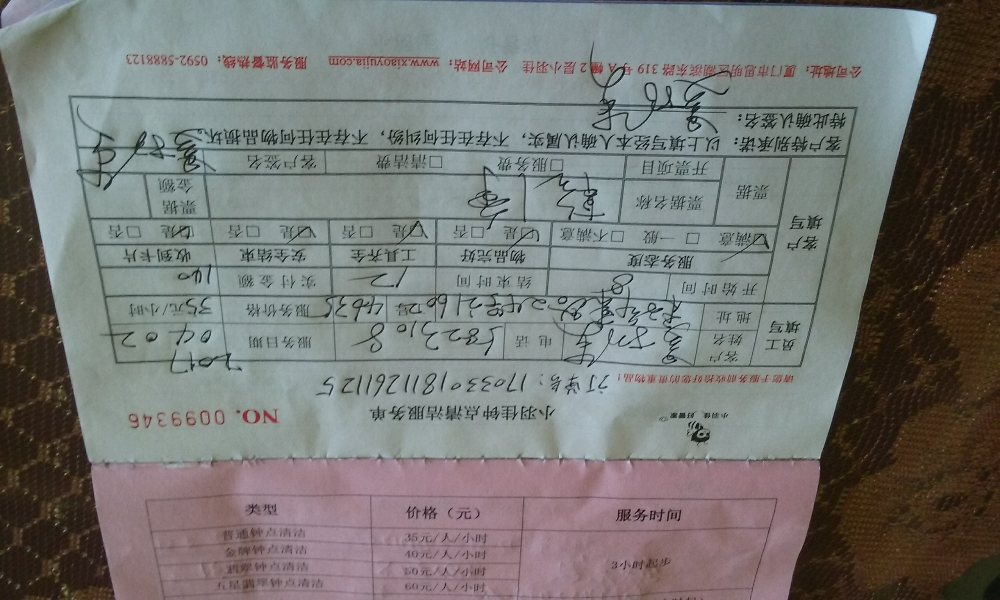 小羽佳 好管家
小羽佳钟点清洁服务单
NO. 0099346
订单号：1703301811261125
请您于服务前收拾好您的贵重物品！
员工填写
客户姓名
电话
服务日期
2017 04.02
地址
服务价格
35元/小时
开始时间 8
结束时间 12
实付金额 140
客户填写
服务态度
物品完好
工具齐全
安全结束
收到卡片
满意 一般 不满意
是 否
是 否
是 否
是 否
票据
票据名称
票据金额
开票项目
服务费
清洁费
客户签名
客户特别承诺：以上填写经本人确认属实，不存在任何纠纷，不存在任何物品损坏。
特此确认签名：
公司地址：厦门市思明区湖滨东路 319 号 A 幢 2 层小羽佳 公司网站：www.xiaoyujia.com 服务监督热线：0592-5888123
类型 价格（元） 服务时间
普通钟点清洁 35元/人/小时
金牌钟点清洁 40元/人/小时
翡翠钟点清洁 50元/人/小时
五星翡翠钟点清洁 60元/人/小时
3小时起步